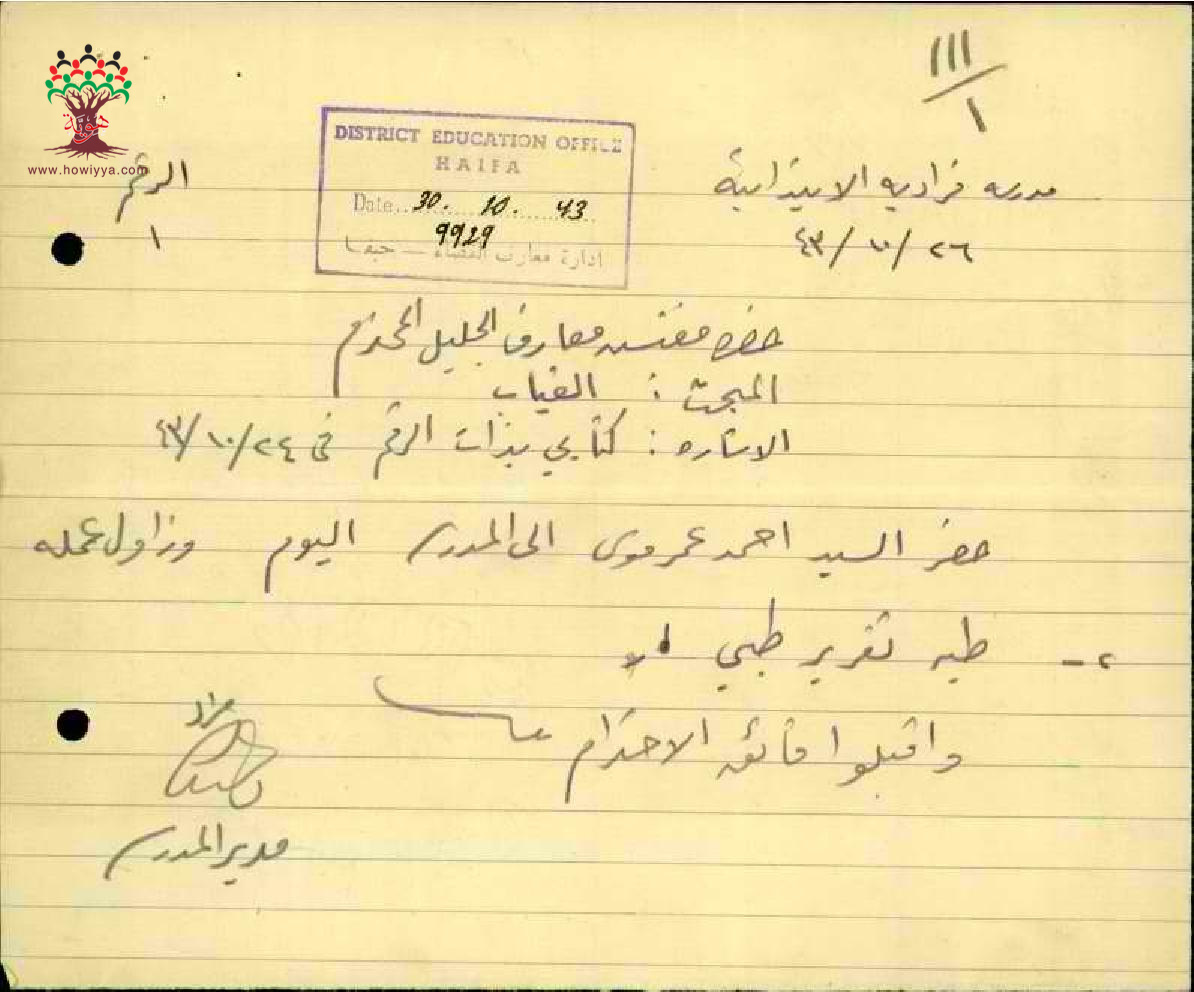 ١١١/١
www.howiyya.com
هوية
DISTRICT EDUCATION OFFICE
HAIFA
Date 30. 10. 43
9929
ادارة معارف القضاء — حيفا
مدرسه فراديه الابتدائية
الرقم
٢٦/١٠/٤٣
١
حضره مفتش معارف الجليل المحترم
المبحث : الغياب
الاشاره : كتابي بذات الرقم في ٢٤/١٠/٤٣
حضر السيد احمد عمر موسى الى المدرسه اليوم وزاول عمله
٢- طيه تقرير طبي
واقبلوا فائق الاحترام
مدير المدرسه